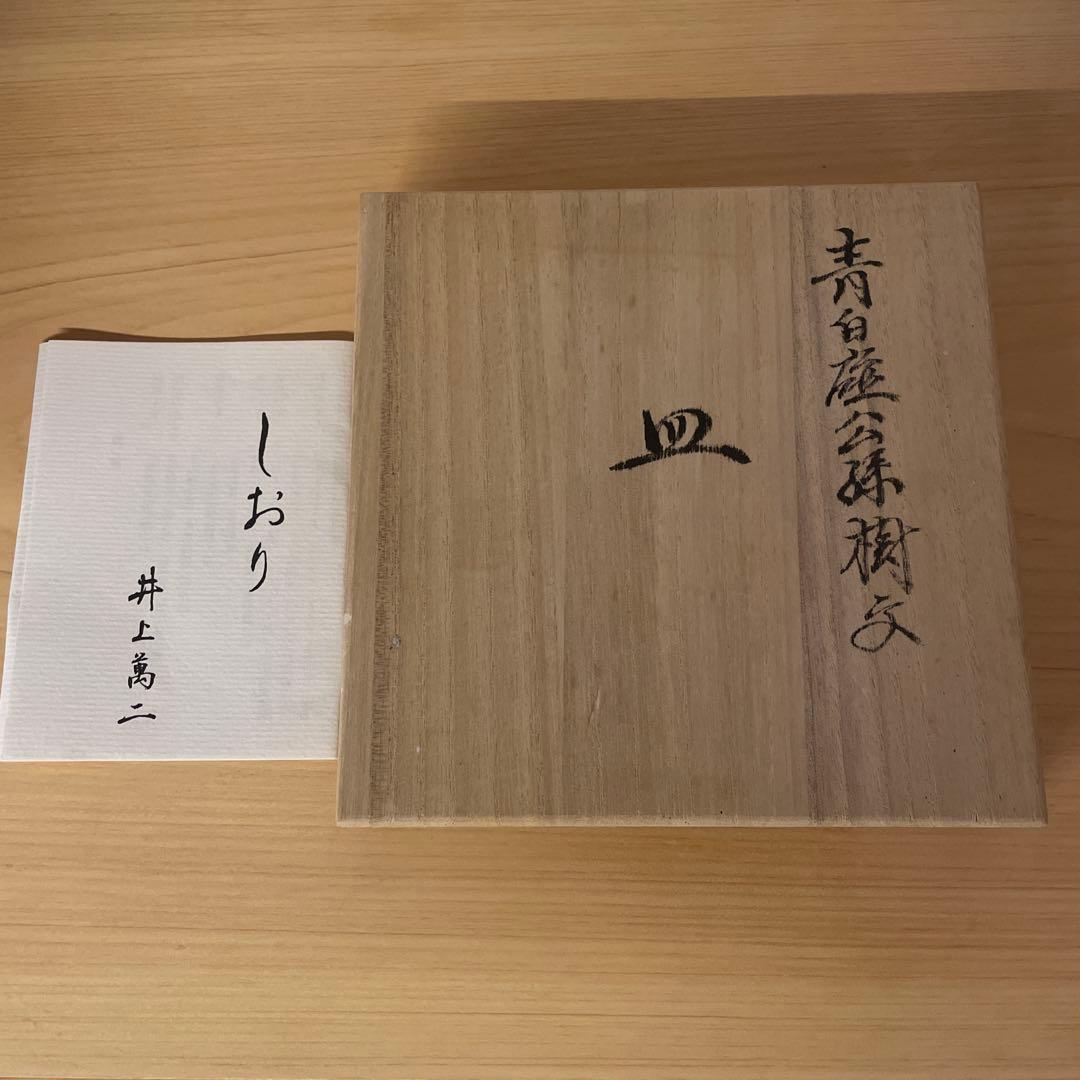 青白磁公孫樹文
皿
しおり
井上萬二